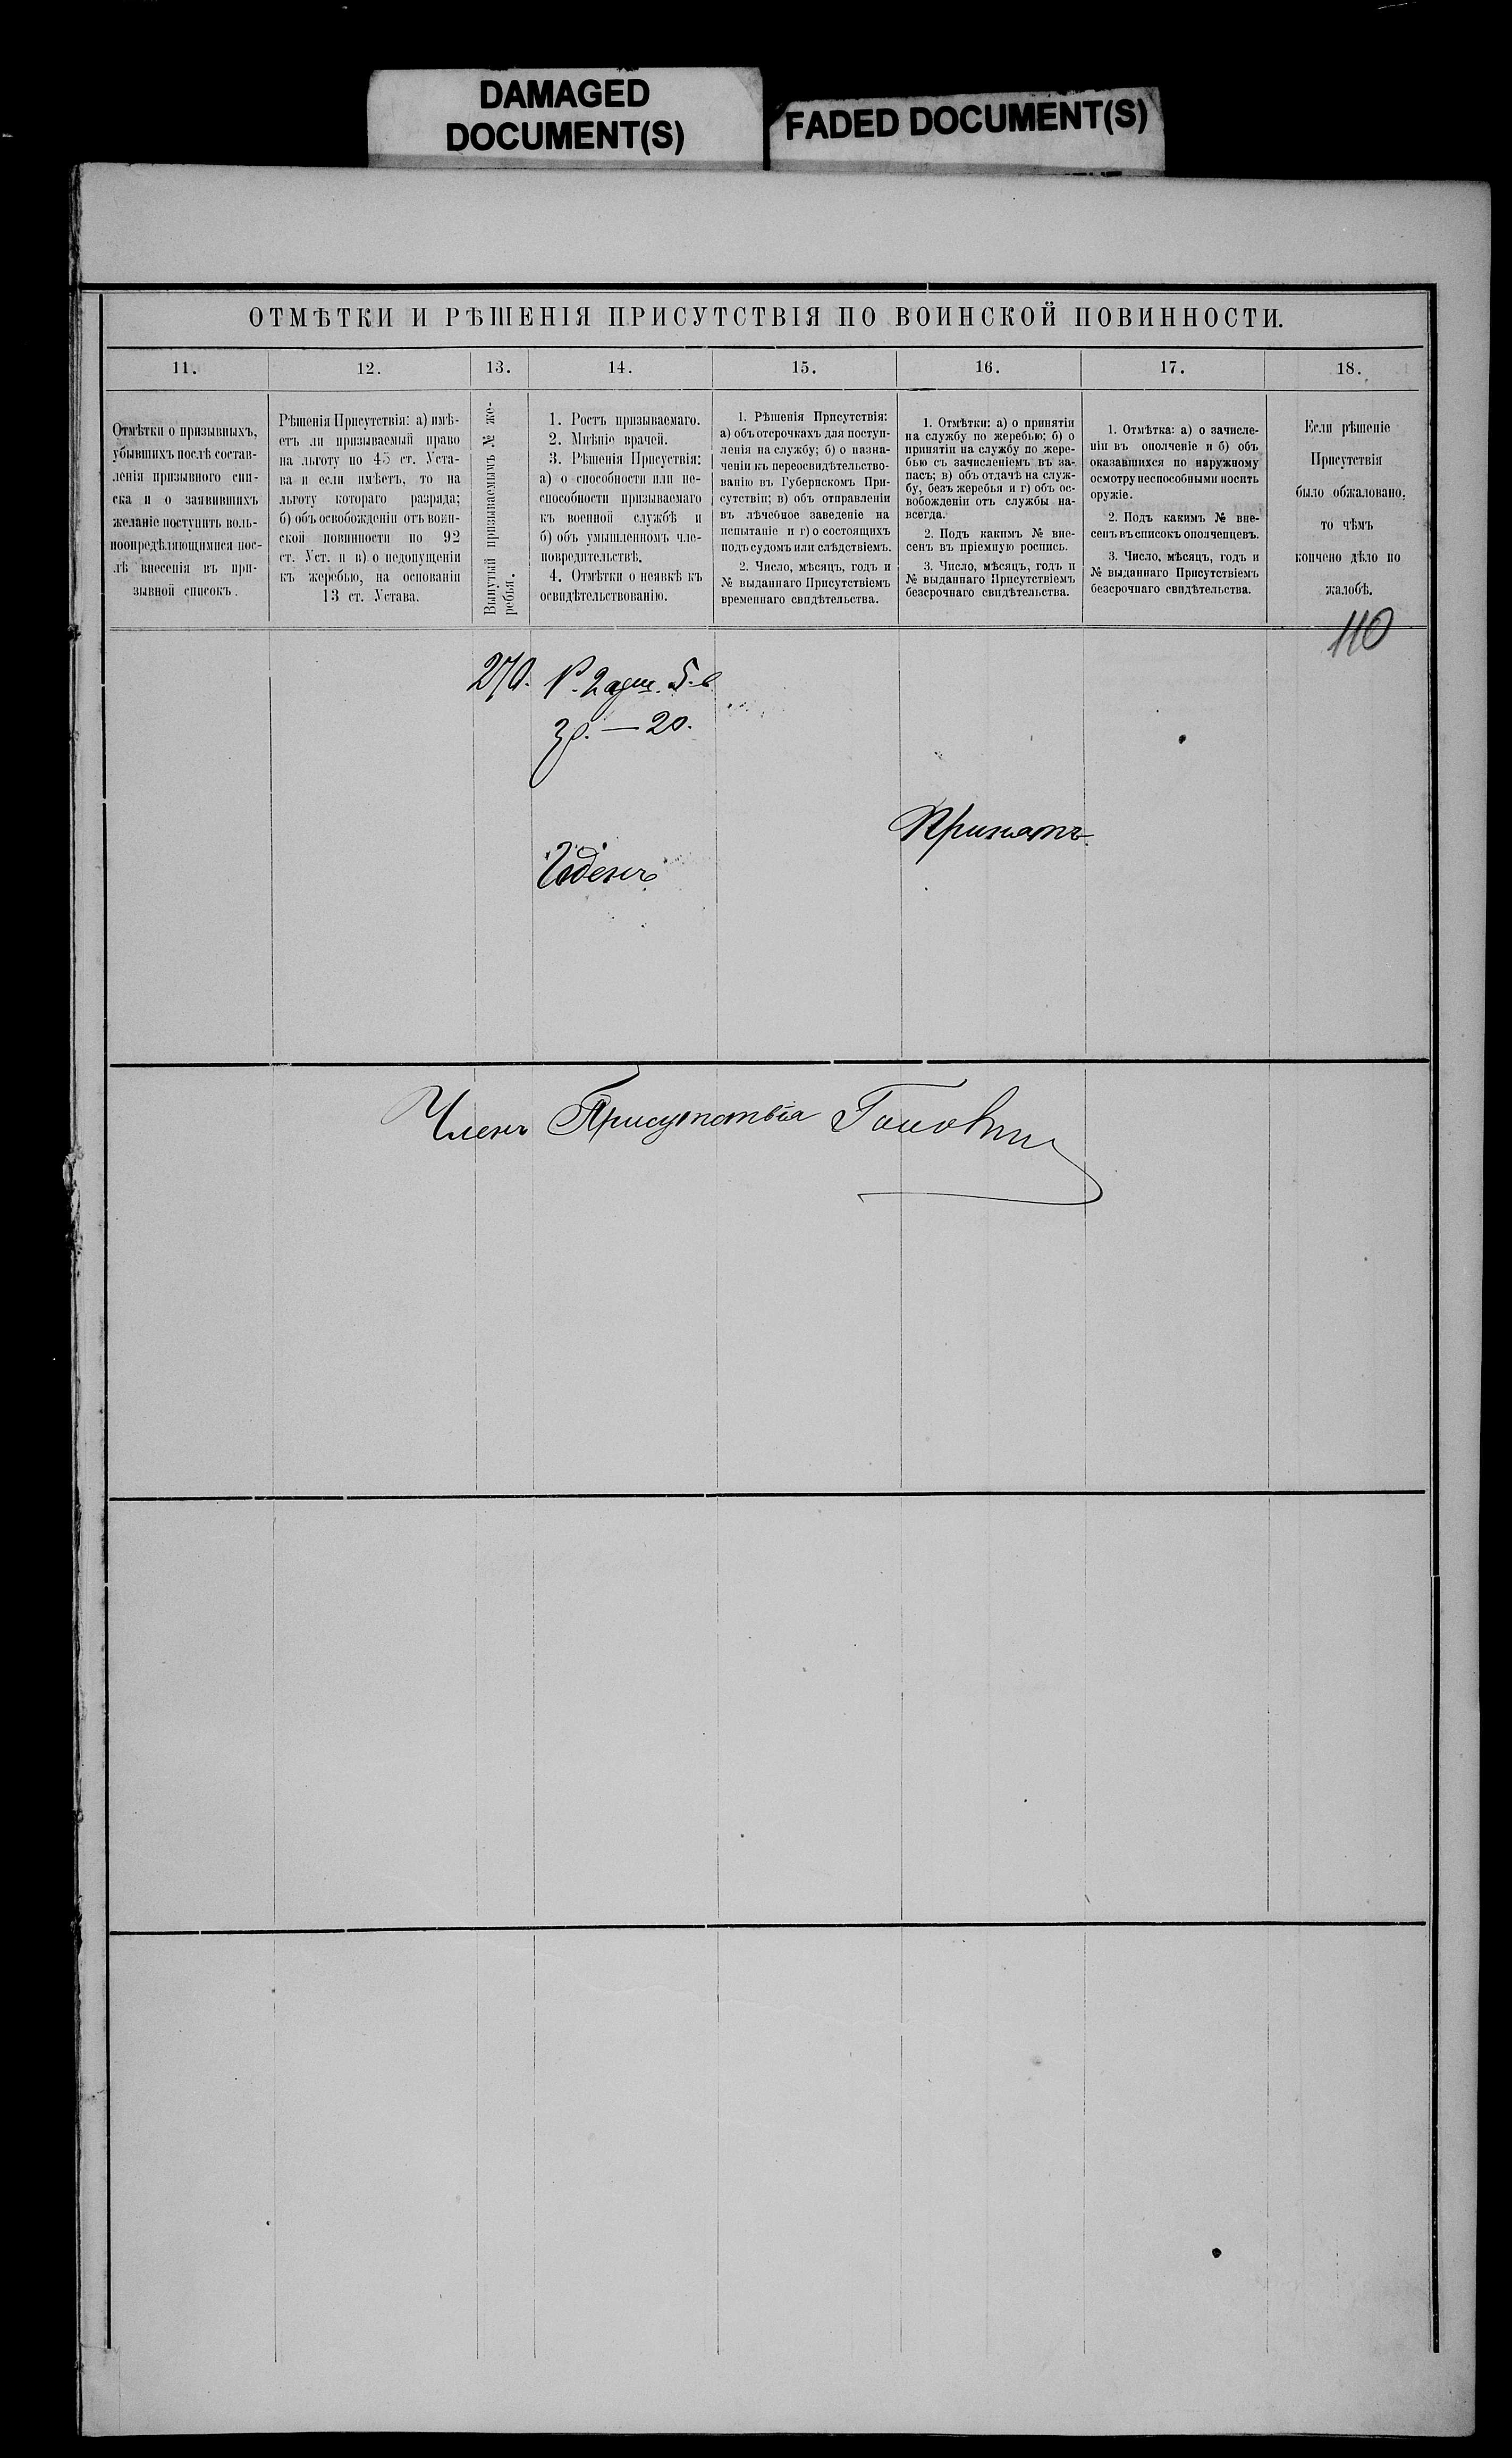 DAMAGED
DOCUMENT(S)
FADED DOCUMENT(S)
ОТМѢТКИ И РѢШЕНІЯ ПРИСУТСТВІЯ ПО ВОИНСКОЙ ПОВИННОСТИ.
11.
12.
13.
14.
15.
16.
17.
18.
Отмѣтки о призывныхъ,
убывшихъ послѣ состав-
ленія призывного спи-
ска и о заявившихъ
желаніе поступить воль-
ноопредѣляющимися пос-
лѣ внесенія въ при-
зывной списокъ.
Рѣшенія Присутствія: а) имѣ-
етъ ли призываемый право
на льготу по 45 ст. Уста-
ва и если имѣетъ, то на
льготу котораго разряда;
б) объ освобожденіи отъ воин-
ской повинности по 92
ст. Уст. и в) о недопущеніи
къ жеребью, на основаніи
13 ст. Устава.
Вынутый призываемымъ № же-
ребья.
1. Ростъ призываемаго.
2. Мнѣніе врачей.
3. Рѣшенія Присуствія:
а) о способности или не-
способности призываемаго
къ военной службѣ и
б) объ умышленномъ чле-
новредительствѣ.
4. Отмѣтки о неявкѣ къ
освидѣтельствованію.
1. Рѣшенія Присутствія:
а) объ отсрочкахъ для поступ-
ленія на службу; б) о назна-
ченіи къ переосвидѣтельство-
ванію въ Губернскомъ При-
сутствіи; в) объ отправленіи
въ лѣчебное заведеніе на
испытаніе и г) о состоящихъ
подъ судомъ или слѣдствіемъ.
2. Число, мѣсяцъ, годъ и
№ выданнаго Присутствіемъ
временнаго свидѣтельства.
1. Отмѣтки: а) о принятіи
на службу по жеребью; б) о
принятіи на службу по жере-
бью съ зачисленіемъ въ за-
пасъ; в) объ отдачѣ на служ-
бу, безъ жеребья и г) объ ос-
вобожденіи отъ службы на-
всегда.
2. Подъ какимъ № вне-
сенъ въ пріемную роспись.
3. Число, мѣсяцъ, годъ и
№ выданнаго Присутствіемъ
безсрочнаго свидѣтельства.
1. Отмѣтка: а) о зачисле-
ніи въ ополченіе и б) объ
оказавшихся по наружному
осмотру неспособными носить
оружіе.
2. Подъ какимъ № вне-
сенъ въ списокъ ополченцевъ.
3. Число, мѣсяцъ, годъ и
№ выданнаго Присутствіемъ
безсрочнаго свидѣтельства.
Если рѣшеніе
Присутствія
было обжаловано,
то чѣмъ
кончено дѣло по
жалобѣ.
110
270. Р. 2 арш. 5. в
гр. — 20.
Принятъ
Годенъ
Членъ Присутствія